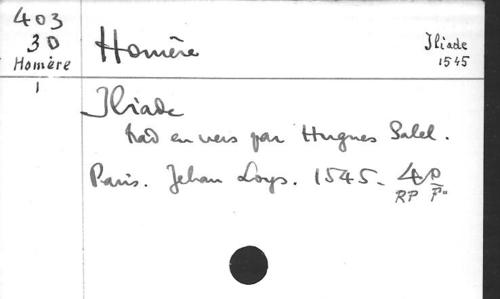 403
30
Homère
1
Homère
Iliade
1545
Iliade
trad en vers par Hugues Salel.
Paris. Jehan Loys. 1545.
RP